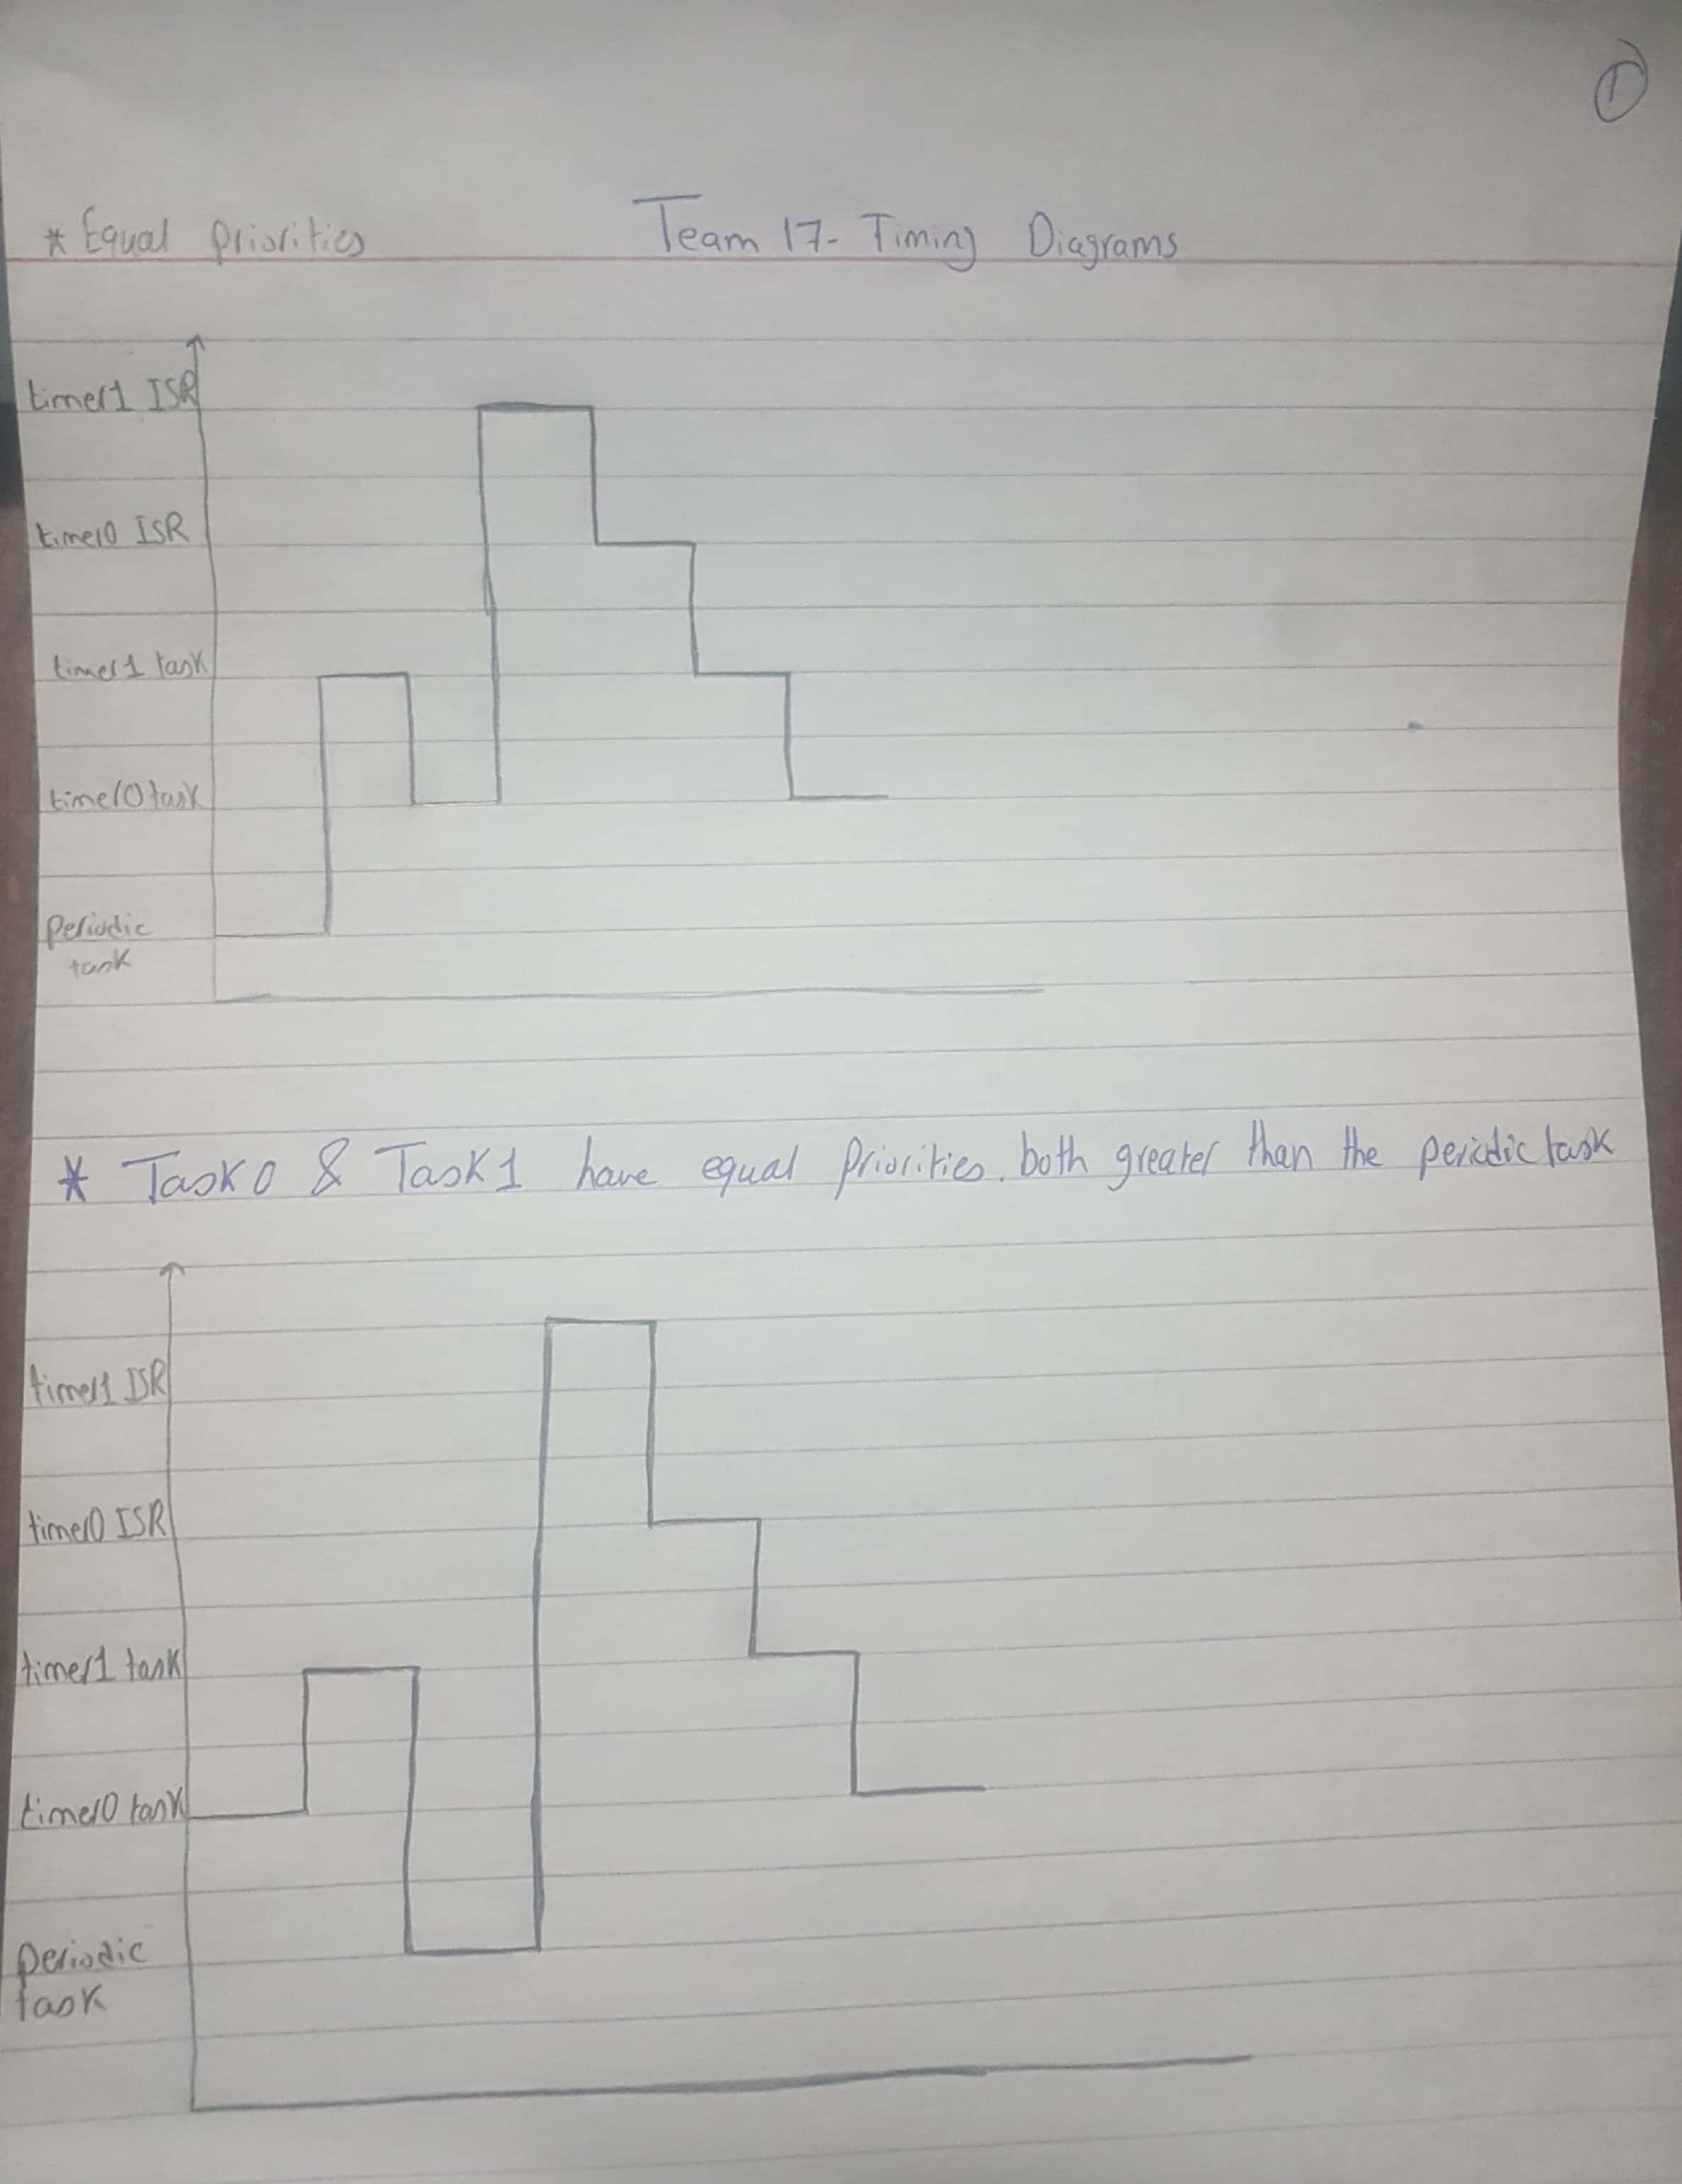 1
* Equal Priorities Team 17- Timing Diagrams
timer1 ISR
timer0 ISR
timer1 task
timer0 task
Periodic
task
* Task0 & Task1 have equal Priorities. both greater than the periodic task
timer1 ISR
timer0 ISR
timer1 task
timer0 task
periodic
task